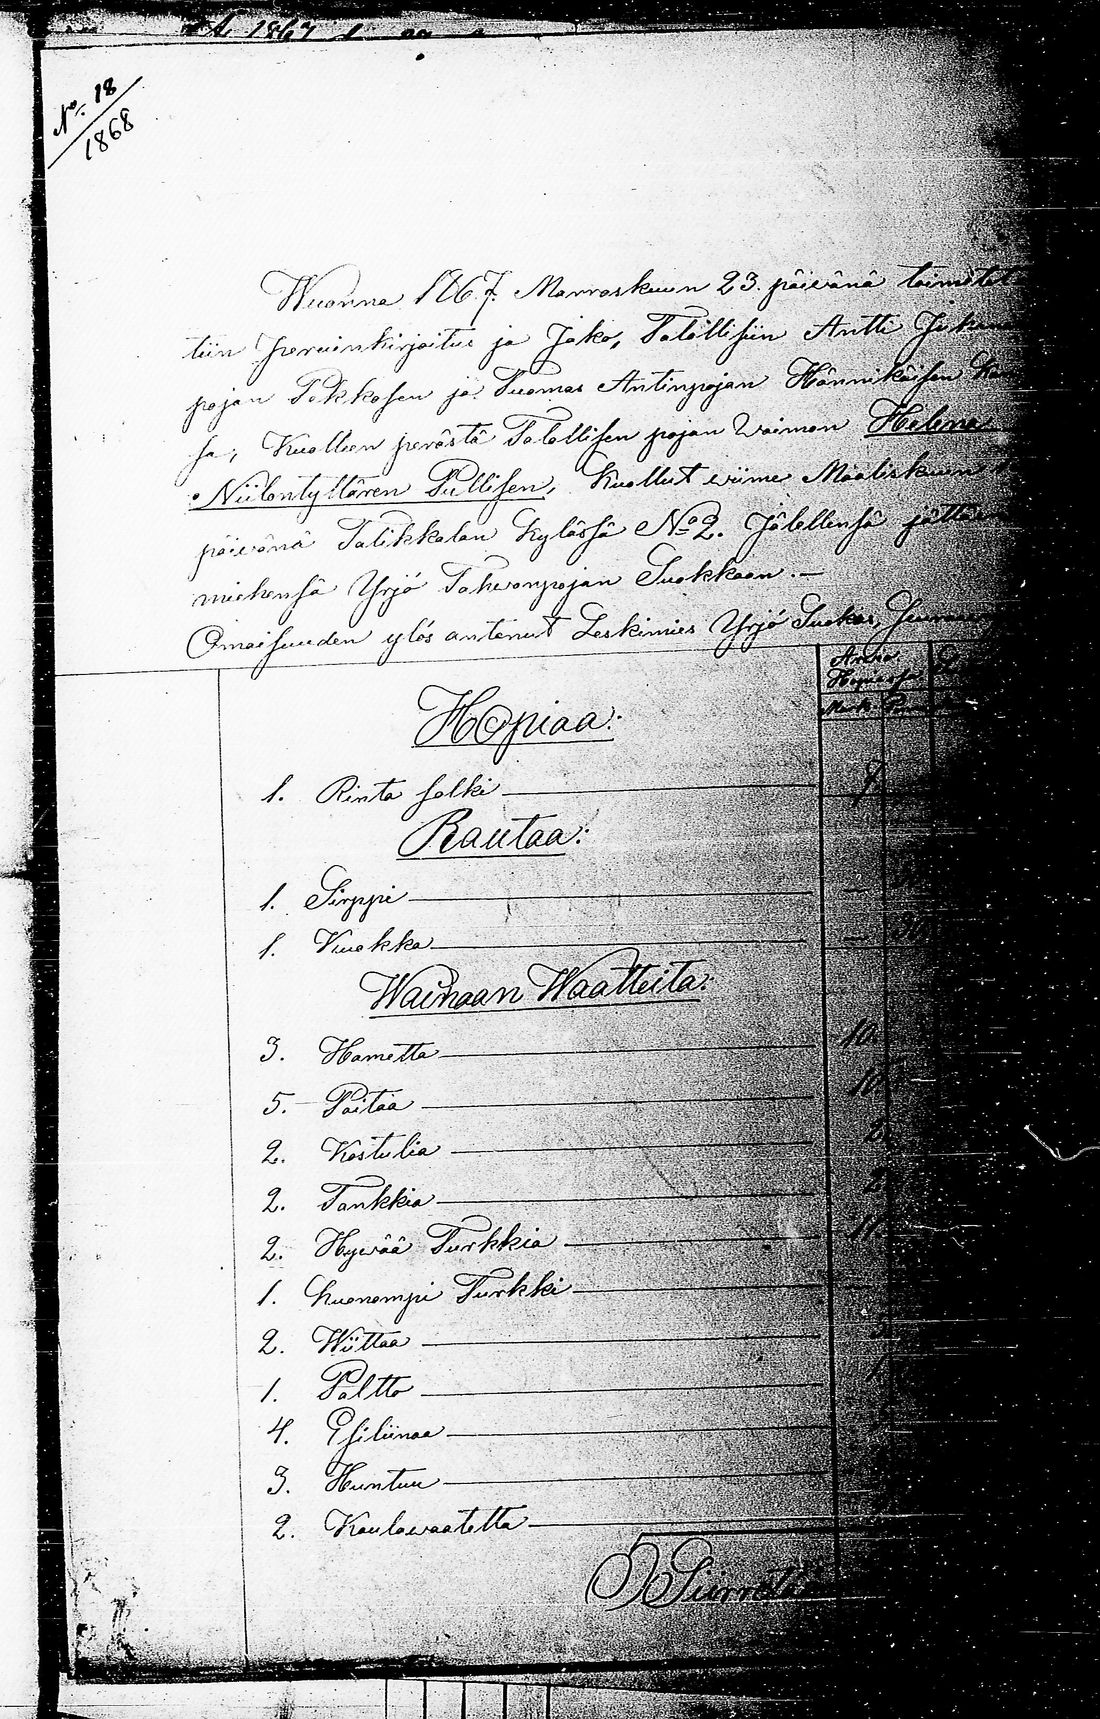 No. 18
1868
Wuonna 1867. Marraskuun 23. päivänä toimitet
tiin Perunkirjoitus ja Jako, Talollisiin Antti
pojan Pekkasen ja Tuomas Antinpojan Hännikäisen
sa, Kuolleen perästä Talollisen pojan Waimon Helena
Niilontyttären Pullisen, Kuollut viime Maaliskuun
päivänä Talikkalan Kylässä No 2. Jälellensä jättäen
miehensä Yrjö Tahvonpojan Suokkaan.—
Omaisuuden ylös antanut Leskimies Yrjö Suokas,
Arvio
Hopiassa
Mark. Pen
Hopiaa:
1. Rinta solki
Rautaa:
1. Sirppi —
1. Kuokka —
Wainaan Waatteita:
3. Hametta 10.
5. Paitaa 10
2. Kostulia 2.
2. Tankkia 2
2. Hyvää Turkkia 11.
1. huonompi Turkki
2. Wiittaa
1. Paltto 1
4. Esiliinaa
3. Huntuu
2. Kaulawaatetta
Siirretään